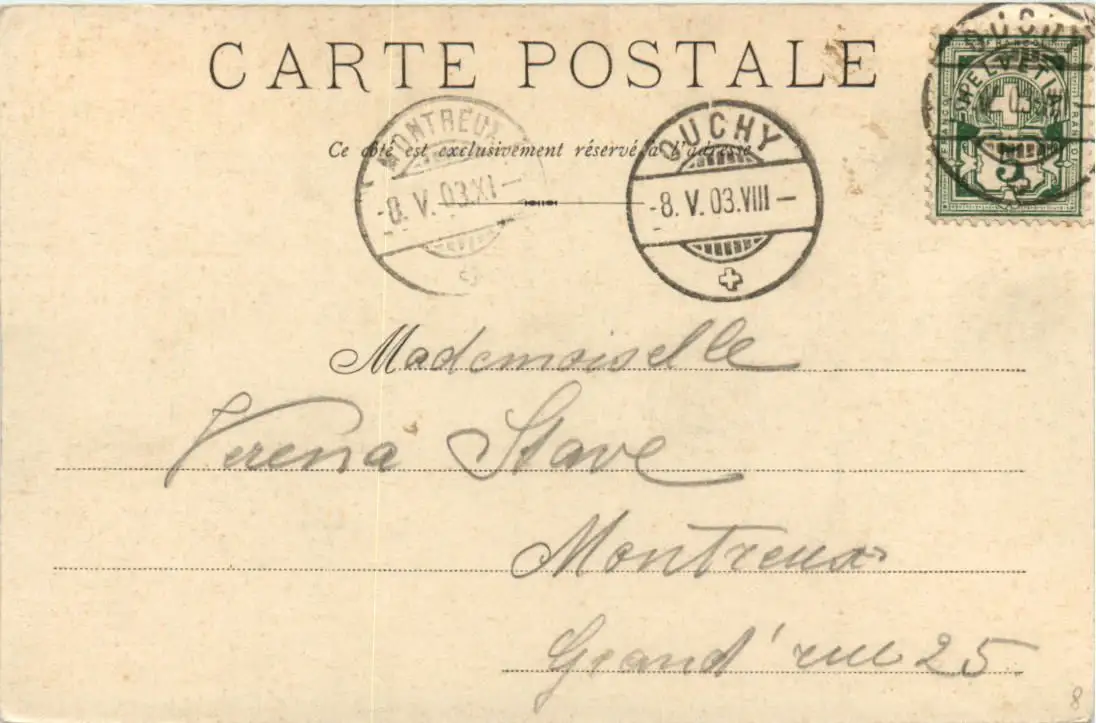 CARTE POSTALE
Ce côté est exclusivement réservé à l'adresse
MONTREUX
-8. V. 03.XI-
OUCHY
-8. V. 03.VIII-
OUCHY
HELVETIA
5
Mademoiselle
Verena Stave
Montreux
Grand'rue 25
8